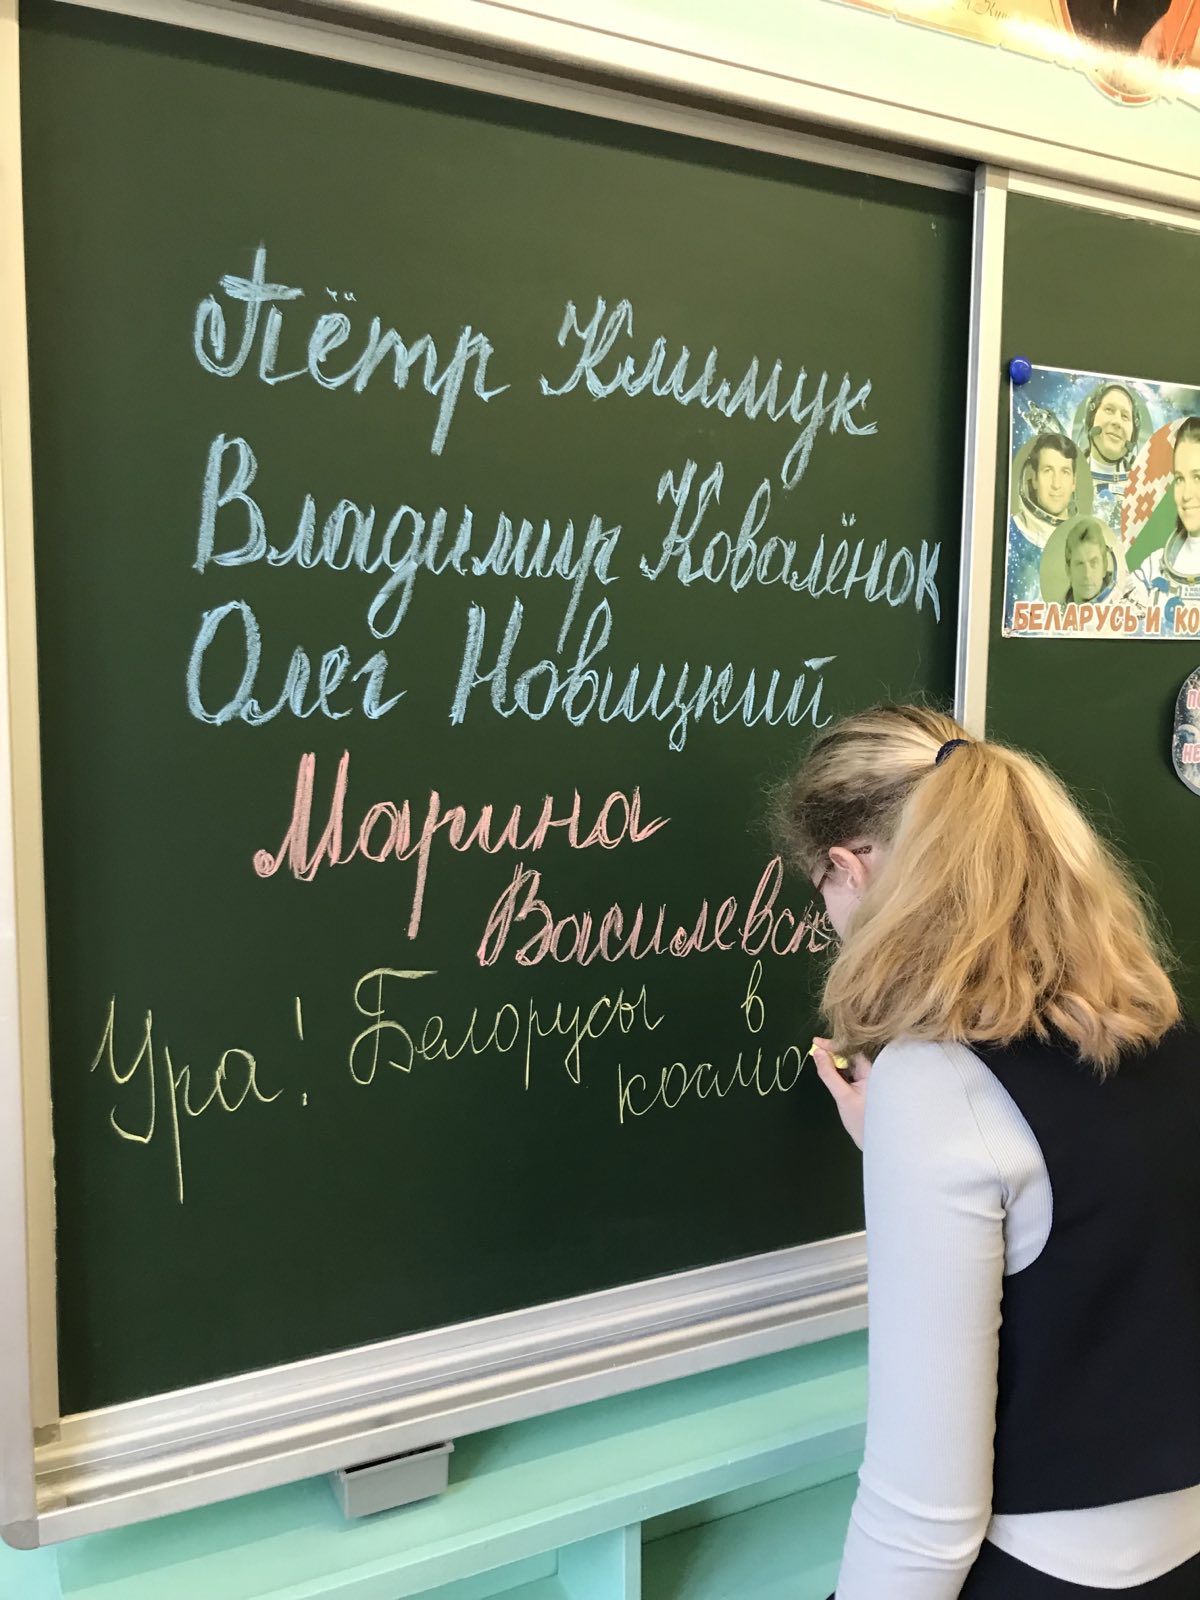 Пётр Климук
Владимир Ковалёнок
Олег Новицкий
Марина
Василевск
Ура! Белорусы в
космо
БЕЛАРУСЬ И КО
ПО
НЕ